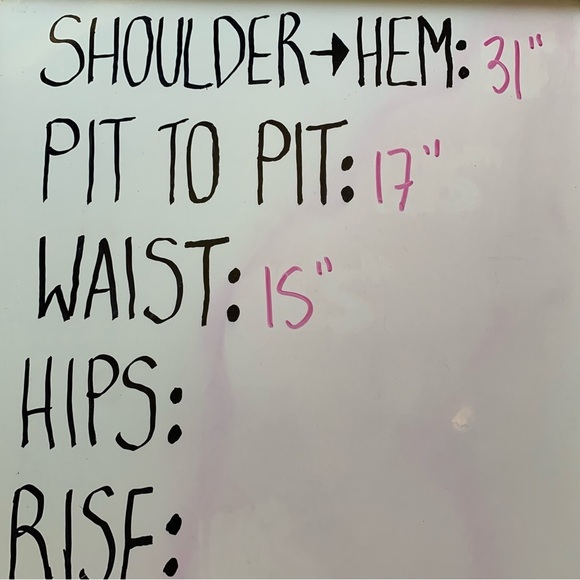 SHOULDER→HEM: 31"
PIT TO PIT: 17"
WAIST: 15"
HIPS:
RISE: